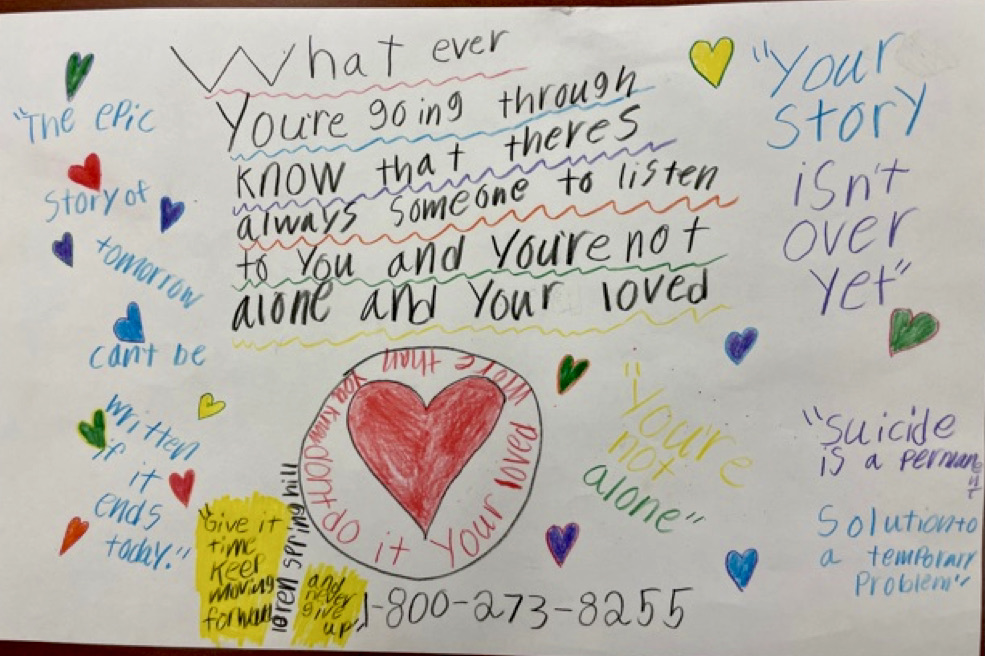 What ever
You're going through
know that theres
always someone to listen
to You and You're not
alone and Your loved
"The epic
story of
tomorrow
can't be
written
if it
ends
today."
"Your
story
isn't
over
yet"
"You're
not
alone"
"Suicide
is a permanent
Solution to
a temporary
Problem"
don't do it Your loved more than you know
"Give it
time
Keep
moving
forward
and
never
give
up"
loren springhill
1-800-273-8255